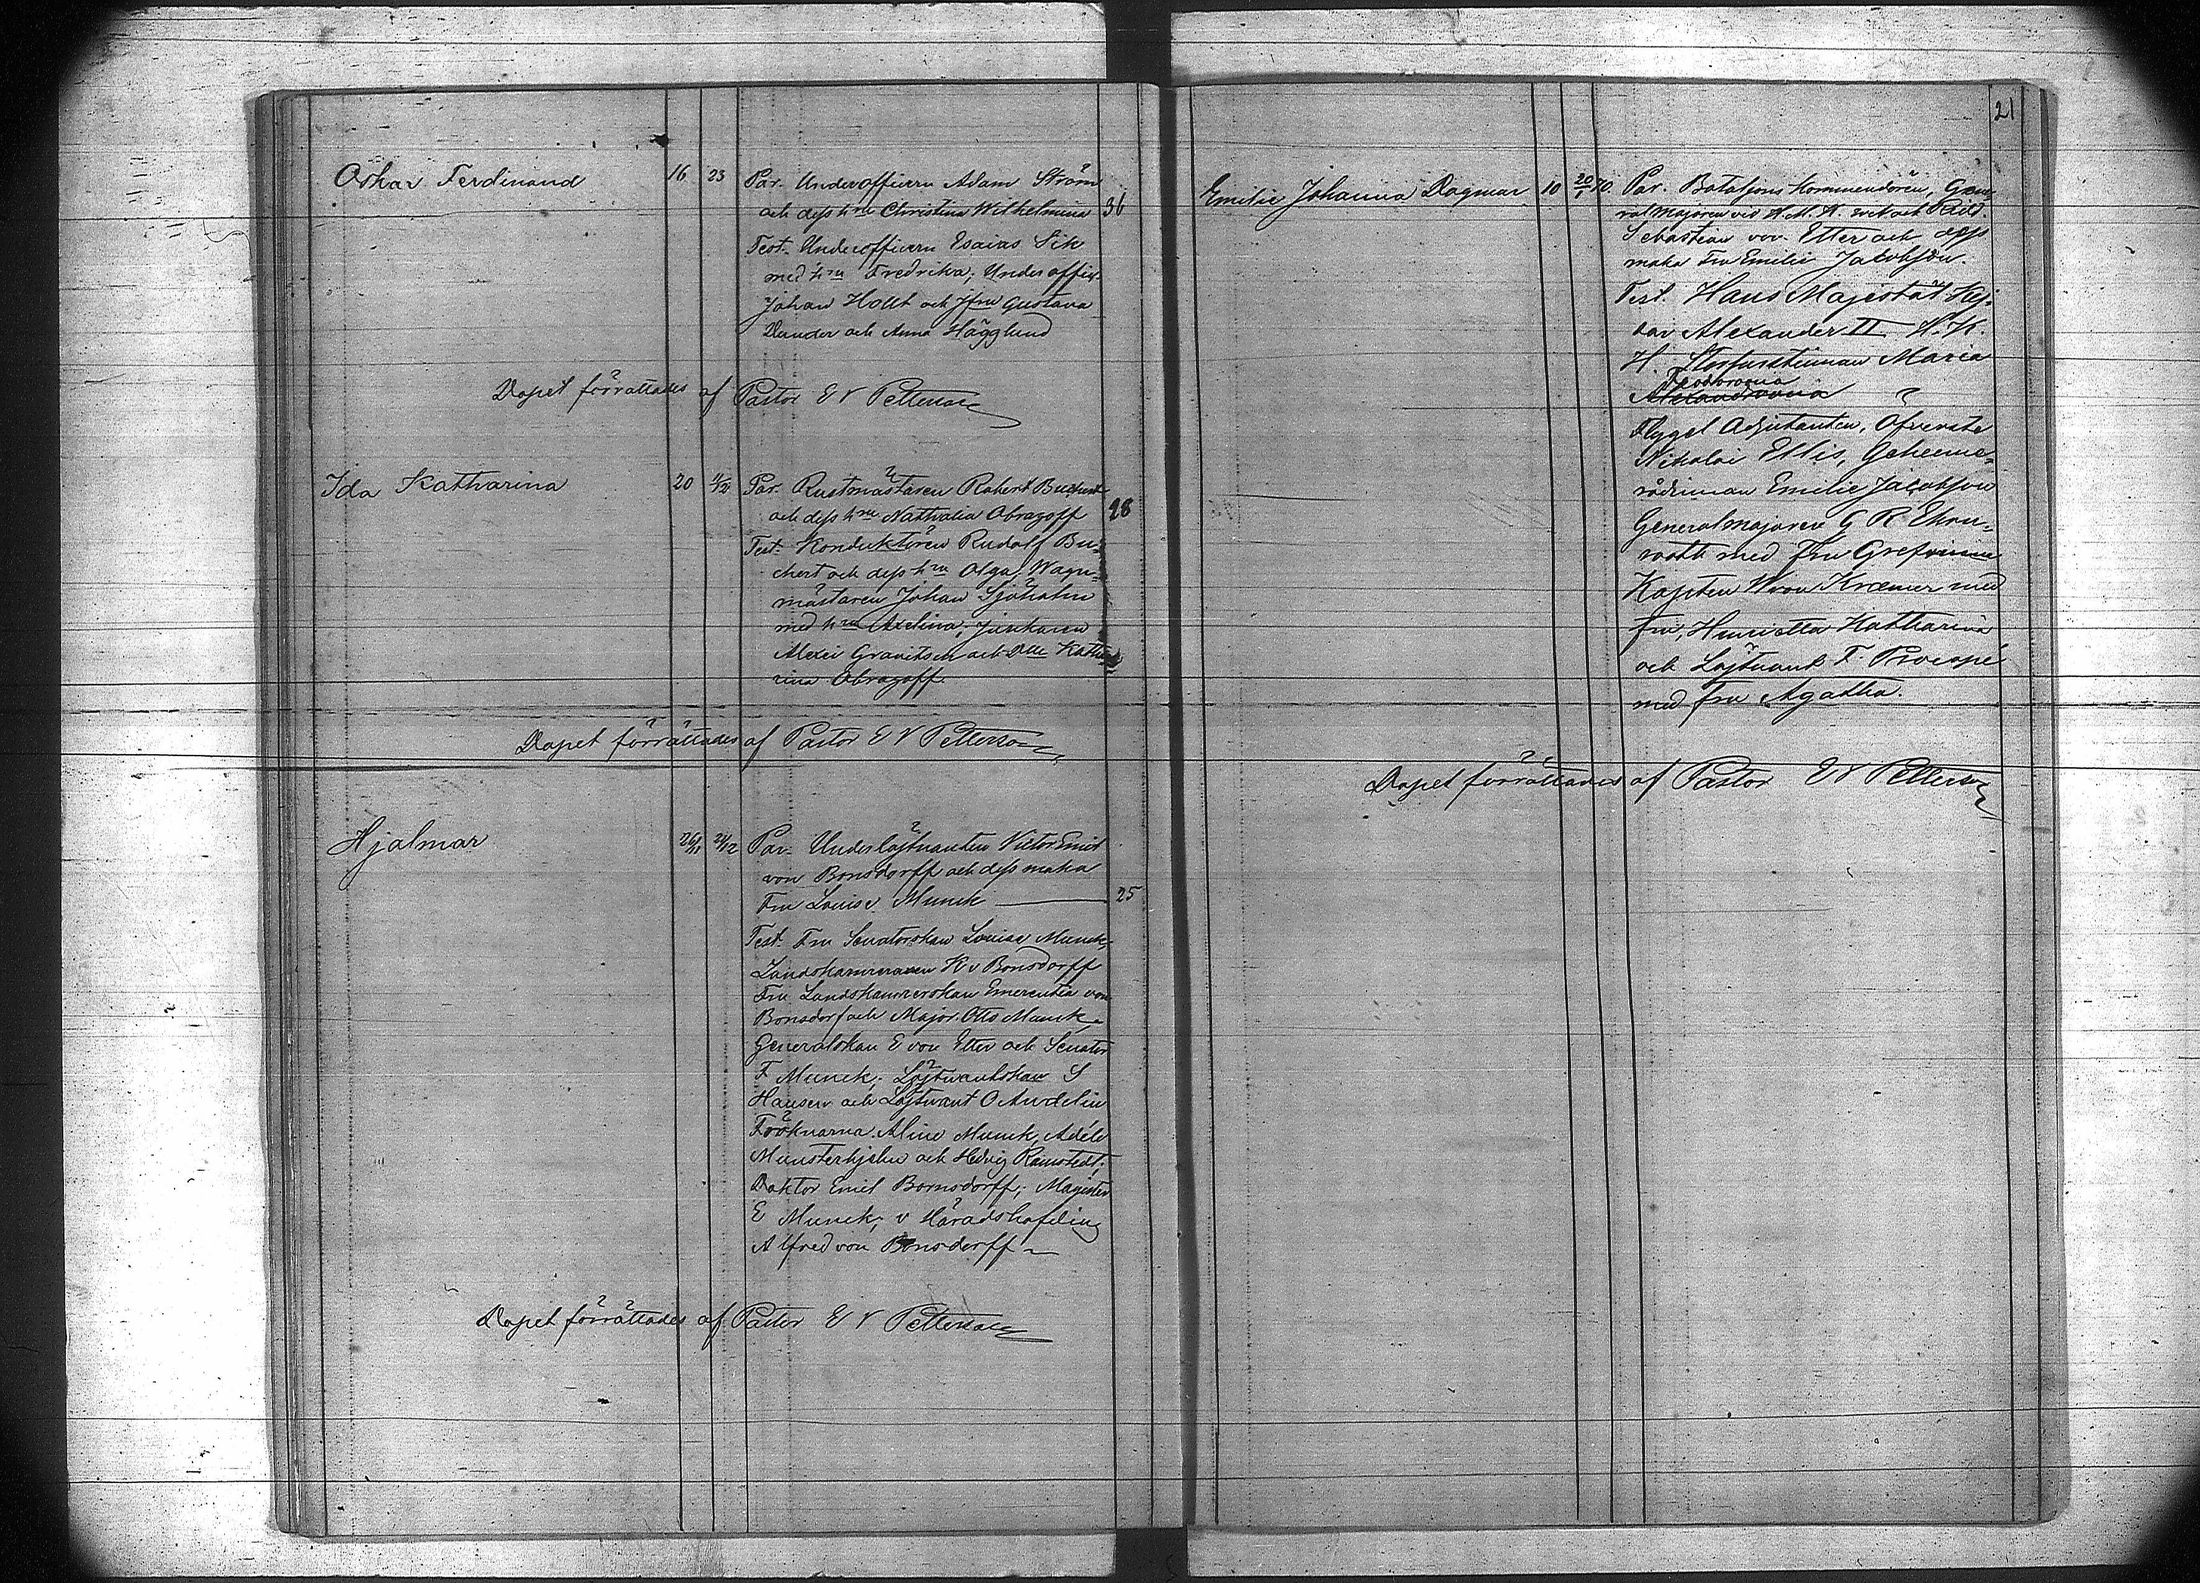 Oskar Ferdinand 16 23 Par. Underofficern Adam Ström
och dess hru Christina Wilhelmina 36
Test. Underofficern Esaias Sik
med hru Fredrika; Underoffic.
Johan Hollt och Jfru Gustava
Dander och Anna Hägglund
Dopet förrättades af Pastor E V Petterson
Ida Katharina 20 4/12 Par. Rustmästaren Robert Buchert
och dess hru Nathalia Obrazoff 28
Test. Konduktören Rudolf Bu-
chert och dess hru Olga; Wagn-
mästaren Johan Sjöholm
med hru Axelina,
Alexei och Dlle Katha
rina Obrazoff.
Dopet förrättades af Pastor E V Petterson
Hjalmar 26/11 21/12 Par. Underlöjtnanten Victor Emil
von Bonsdorff och dess maka
Fru Louise Munck 25
Test. Fru Senatorskan Louise Munck,
Landskamreraren K v Bonsdorff
Fru Landskamrerskan Emerentia von
Bonsdorf och Major Otto Munck
Generalskan E von Etter och Senator
F Munck; Löjtnantskan S
Hausen och Löjtnant O Aurdelin
Fröknarna Aline Munck, Adéle
Munsterhjelm och Hedvig Ramstedt;
Doktor Emil Bonsdorff; Magister
E Munck; v Häradshöfding
Alfred von Bonsdorff
Dopet förrättades af Pastor E V Petterson
21
Emilie Johanna Dagmar 10 20/1 70. Par. Bataljons Kommendören, Gene-
ralmajoren vid H. M. K. svit och Ridd.
Sebastian von Etter och dess
maka Fru Emilie Jacobson.
Test. Hans Majestät Kej-
sar Alexander II H. K.
H. Storfurstinnan Maria
Feodorovna
Alexandrovna
Flygel Adjutanten, Öfverste
Nikolai Etlis, Geheime-
rådinnan Emilie Jacobson
Generalmajoren G R Ehrn-
rooth med Fru Grefvinna
Kapten W von Kræmer med
fru, Henrietta Katharina
och Löjtnant F. Procopé
med fru Agatha.
Dopet förrättades af Pastor E V Petterson